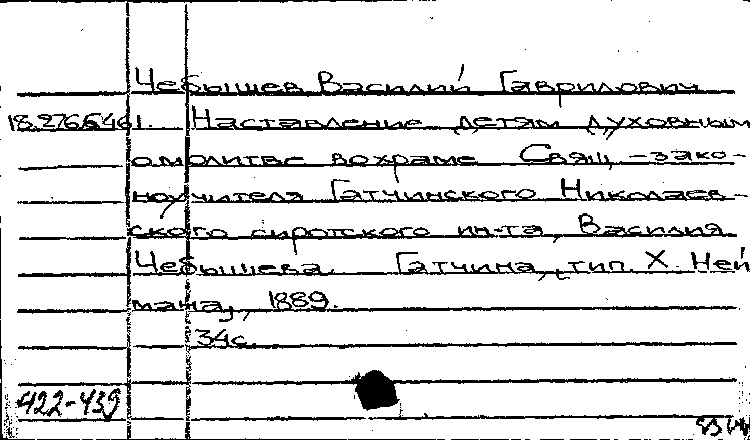 Чебышев, Василий Гаврилович
18.276.6.461. Наставление детям духовным
о молитве во храме Свящ.-зако-
ноучителя Гатчинского Николаев-
ского сиротского ин-та, Василия
Чебышева. Гатчина, тип. Х. Ней
мана, 1889.
34с.
422-439